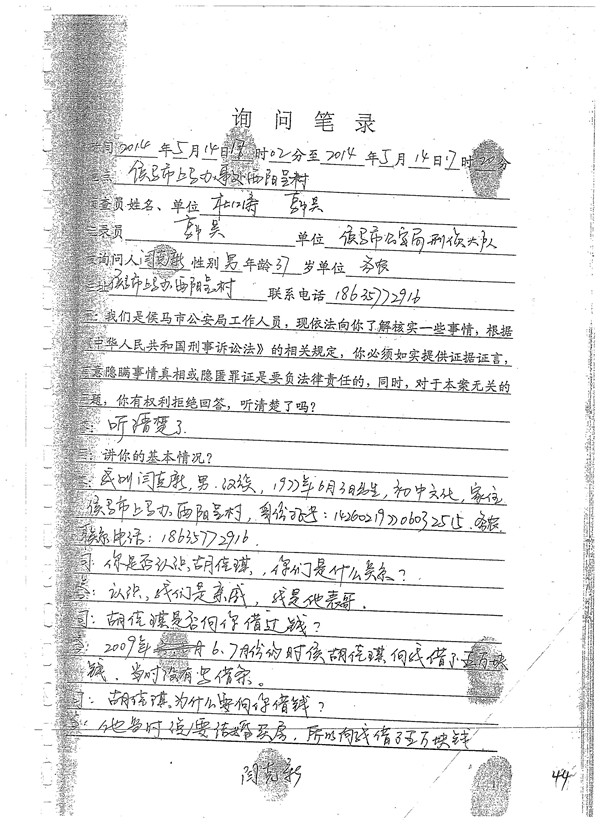 询问笔录
时间 2014 年 5 月 14 日 时 02 分至 2014 年 5 月 14 日 17 时 20 分
地点 侯马市上马办事处西阳呈村
询查员姓名、单位
记录员 单位 侯马市公安局刑侦大队
被询问人 性别 男 年龄 37 岁单位 务农
住址 侯马市上马办西阳呈村 联系电话 18635772916
问:我们是侯马市公安局工作人员,现依法向你了解核实一些事情,根据
《中华人民共和国刑事诉讼法》的相关规定,你必须如实提供证据证言,
有意隐瞒事情真相或隐匿罪证是要负法律责任的,同时,对于本案无关的
问题,你有权利拒绝回答,听清楚了吗?
答:听清楚了
问:讲你的基本情况?
答:我叫闫克彬,男,汉族,1977年6月3日出生,初中文化,家住
侯马市上马办西阳呈村,身份证号:142602197706032515 务农
联系电话:18635772916.
问:你是否认识胡佳琪,你们是什么关系?
答:认识,我们是亲戚,我是他表哥.
问:胡佳琪是否向你借过钱?
答:2009年 6.7月份的时候胡佳琪向我借了五万块
钱,当时没有写借条.
问:胡佳琪为什么要向你借钱?
答:他当时说要结婚买房,所以向我借了五万块钱
闫克彬
44